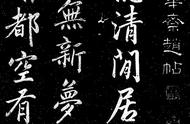 齋趙帖
清閒居
無新夢
都空有